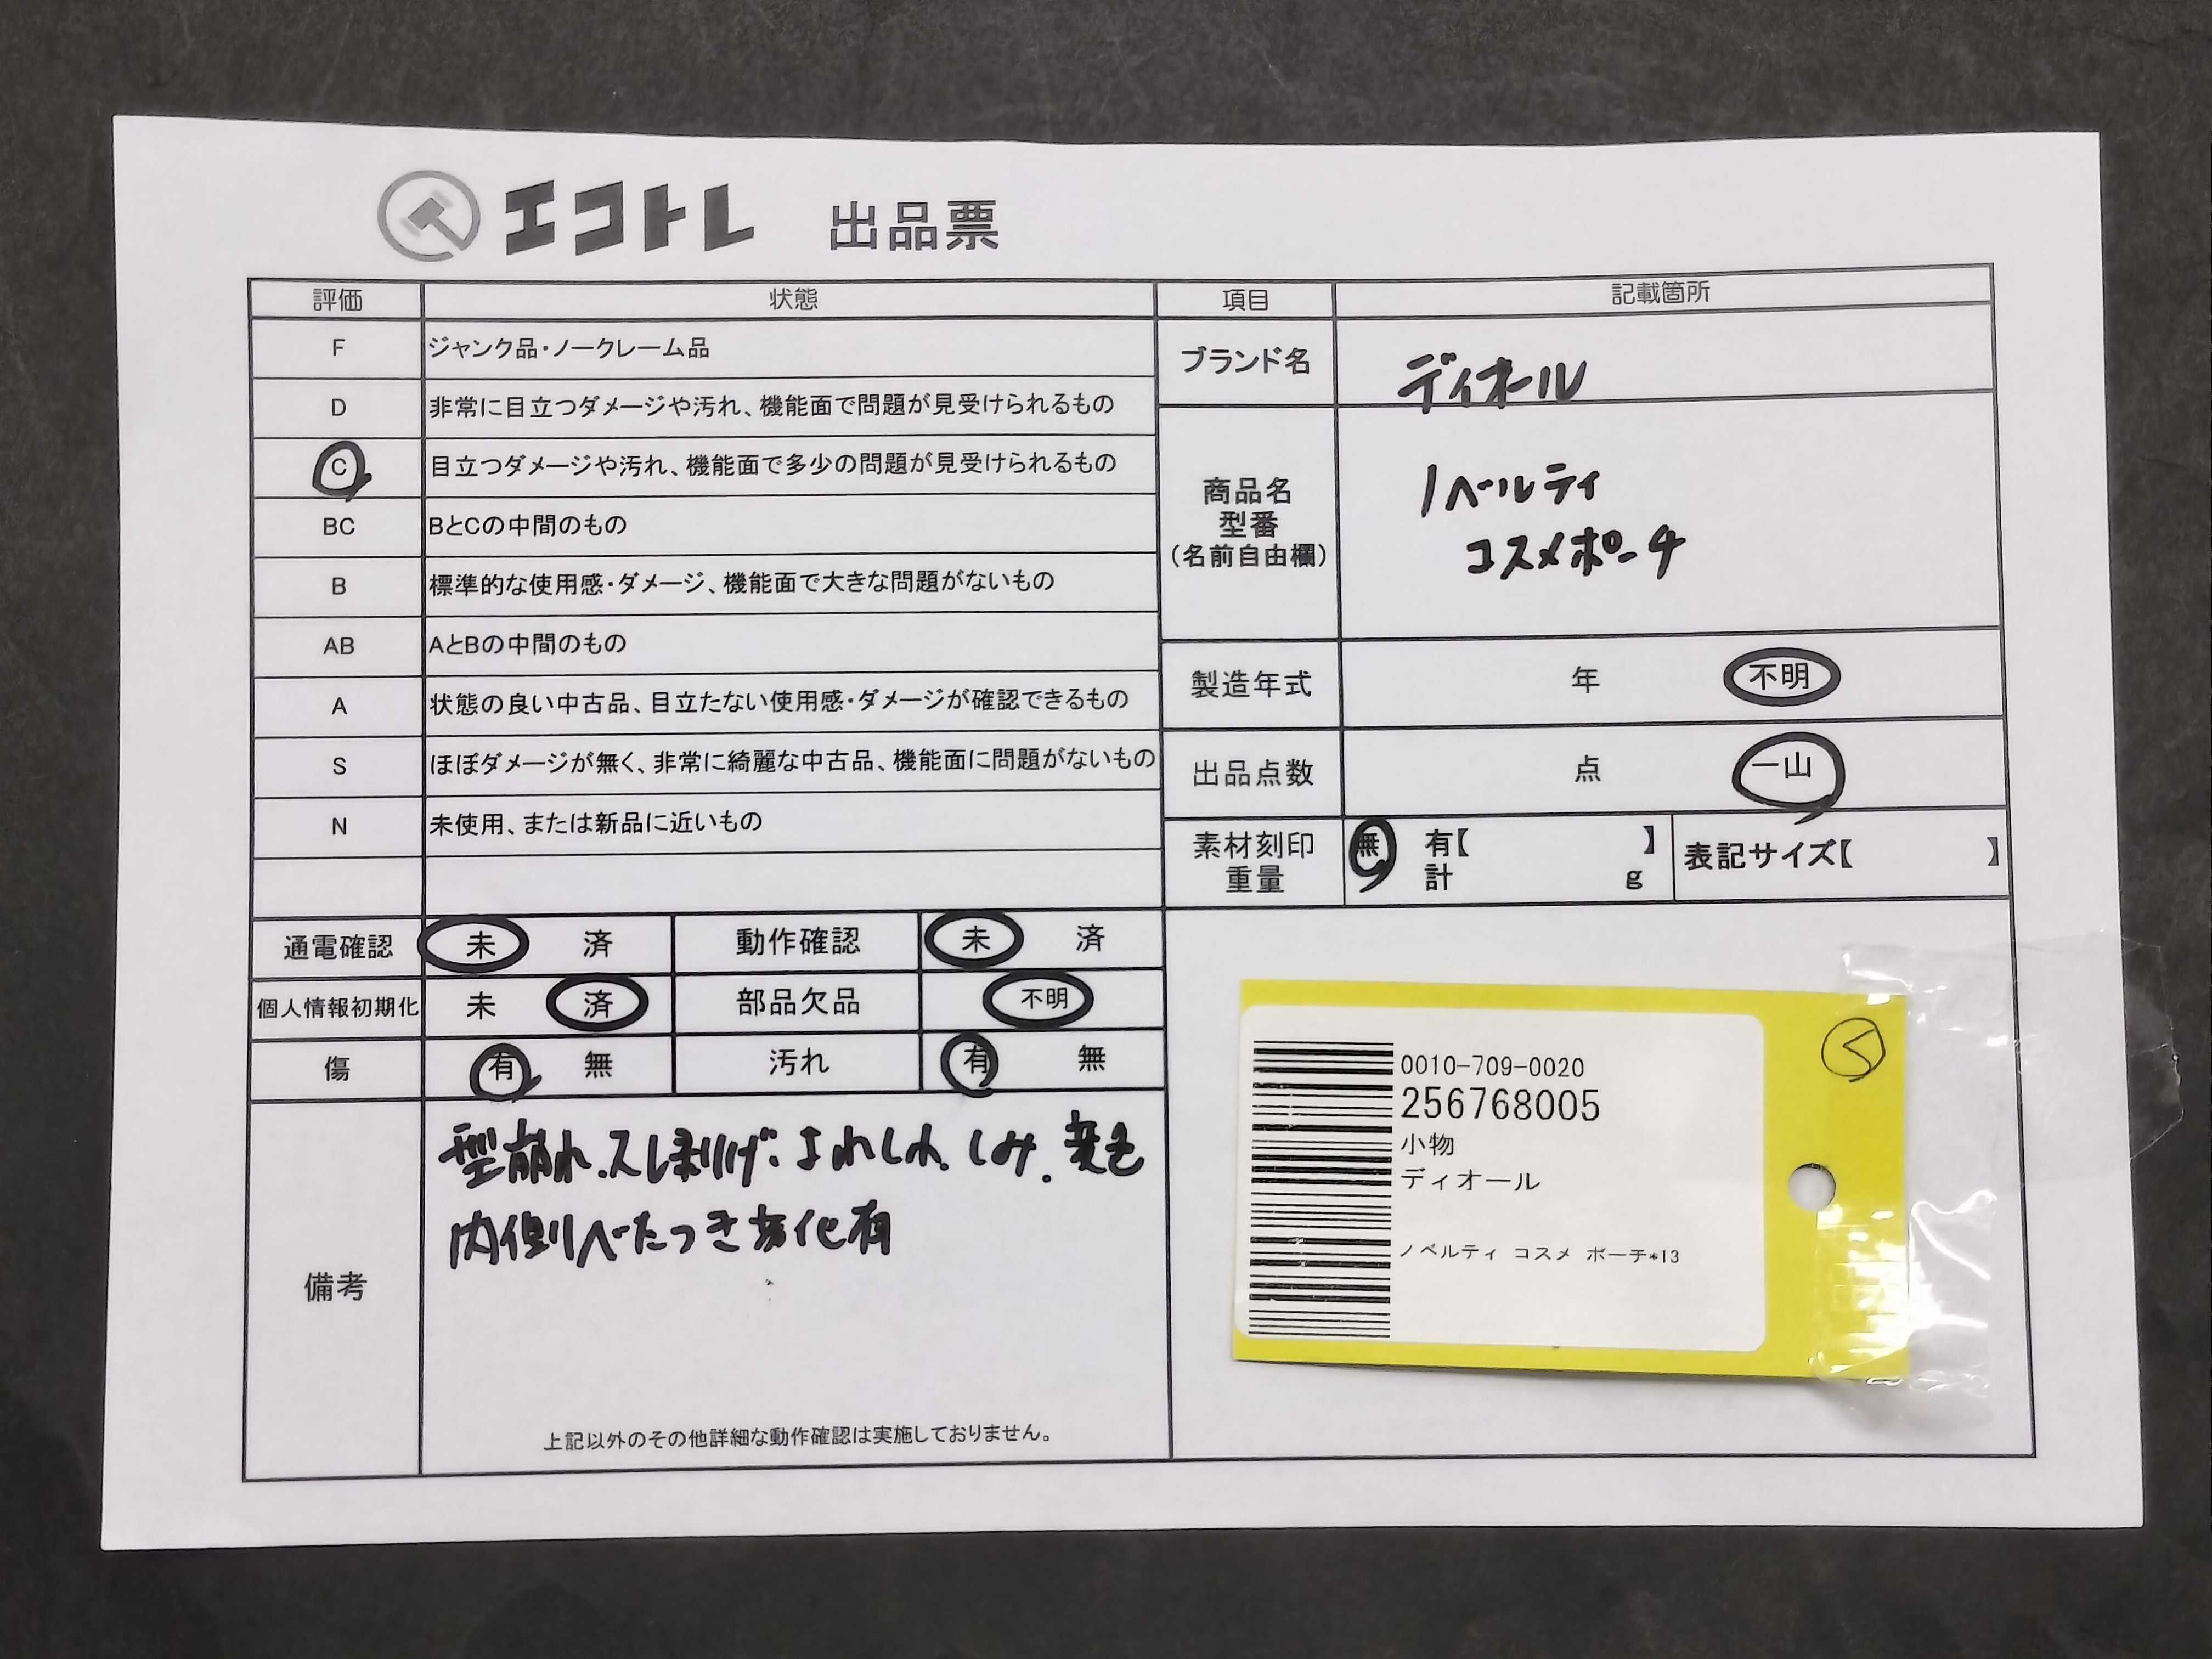 エコトレ 出品票
評価 状態
F ジャンク品・ノークレーム品
D 非常に目立つダメージや汚れ、機能面で問題が見受けられるもの
C 目立つダメージや汚れ、機能面で多少の問題が見受けられるもの
BC BとCの中間のもの
B 標準的な使用感・ダメージ、機能面で大きな問題がないもの
AB AとBの中間のもの
A 状態の良い中古品、目立たない使用感・ダメージが確認できるもの
S ほぼダメージが無く、非常に綺麗な中古品、機能面に問題がないもの
N 未使用、または新品に近いもの
通電確認 未 済 動作確認 未 済
個人情報初期化 未 済 部品欠品 不明
傷 有 無 汚れ 有 無
備考
型崩れ.スレ剥げ.よれしわ.しみ.変色
内側べたつき劣化有
上記以外のその他詳細な動作確認は実施しておりません。
項目 記載箇所
ブランド名 ディオール
商品名
型番
(名前自由欄)
ノベルティ
コスメポーチ
製造年式 年 不明
出品点数 点 一山
素材刻印
重量
無 有【 】
計 g
表記サイズ【 】
0010-709-0020
256768005
小物
ディオール
ノベルティ コスメ ポーチ*13
S